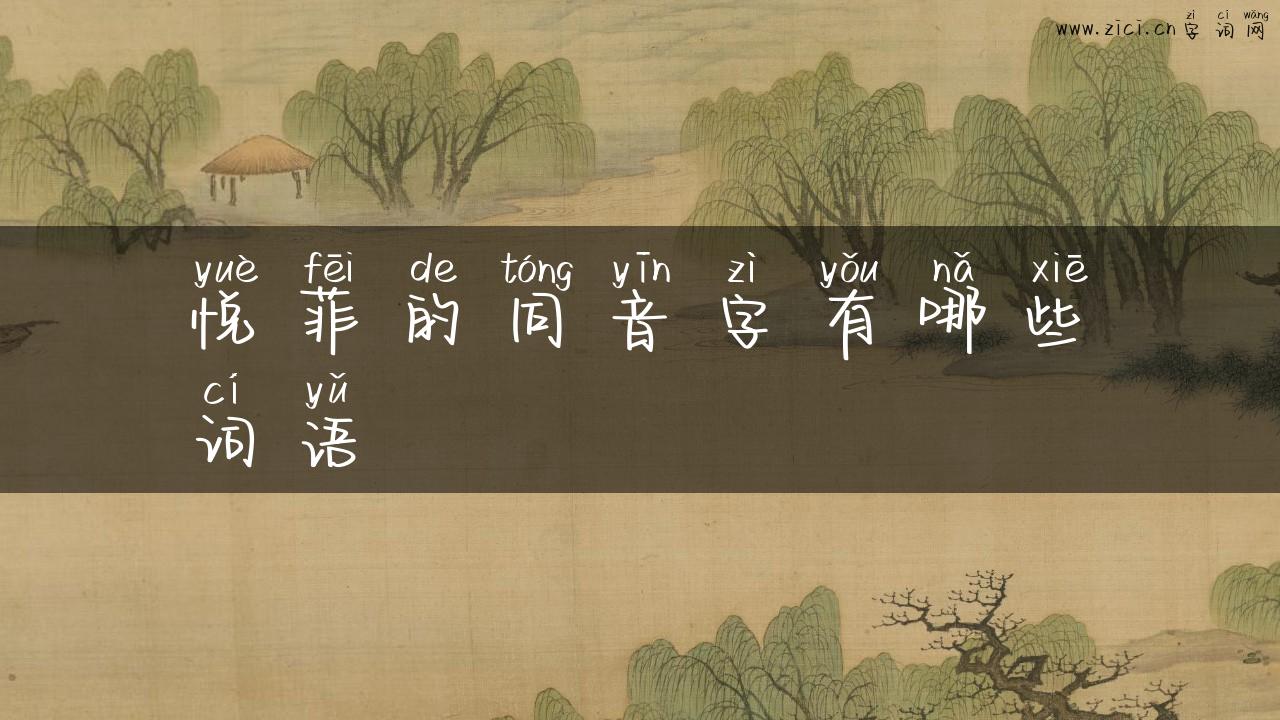 zì cí wǎng
www.zici.cn 字 词 网
yuè fēi de tóng yīn zì yǒu nǎ xiē
悦 菲 的 同 音 字 有 哪 些
cí yǔ
词 语